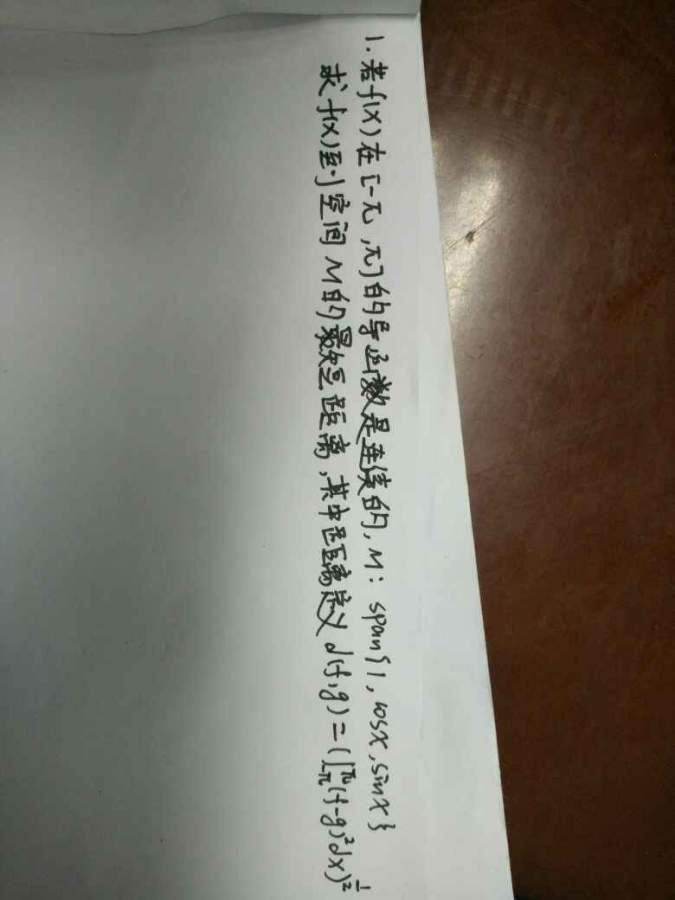 1. 若f(x)在[-π,π]的导函数是连续的, M: span{1, cosx, sinx}
求f(x)到空间M的最短距离,其中距离定义d(f,g)=(∫_{-π}^{π}(f-g)²dx)^{1/2}